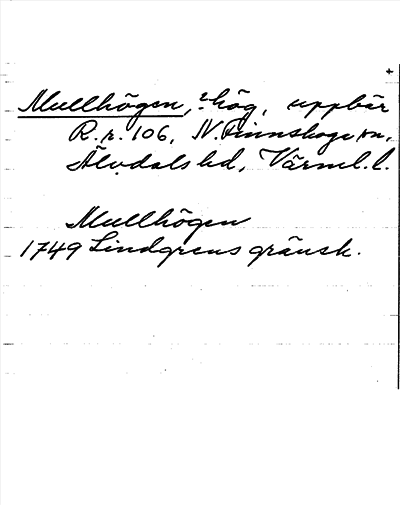 Mullhögen, ?hög, uppbär
R.r. 106, N. Finnskoga sn,
Älvdals hd, Värml. l.
Mullhögen
1749 Lindgrens gränsk.